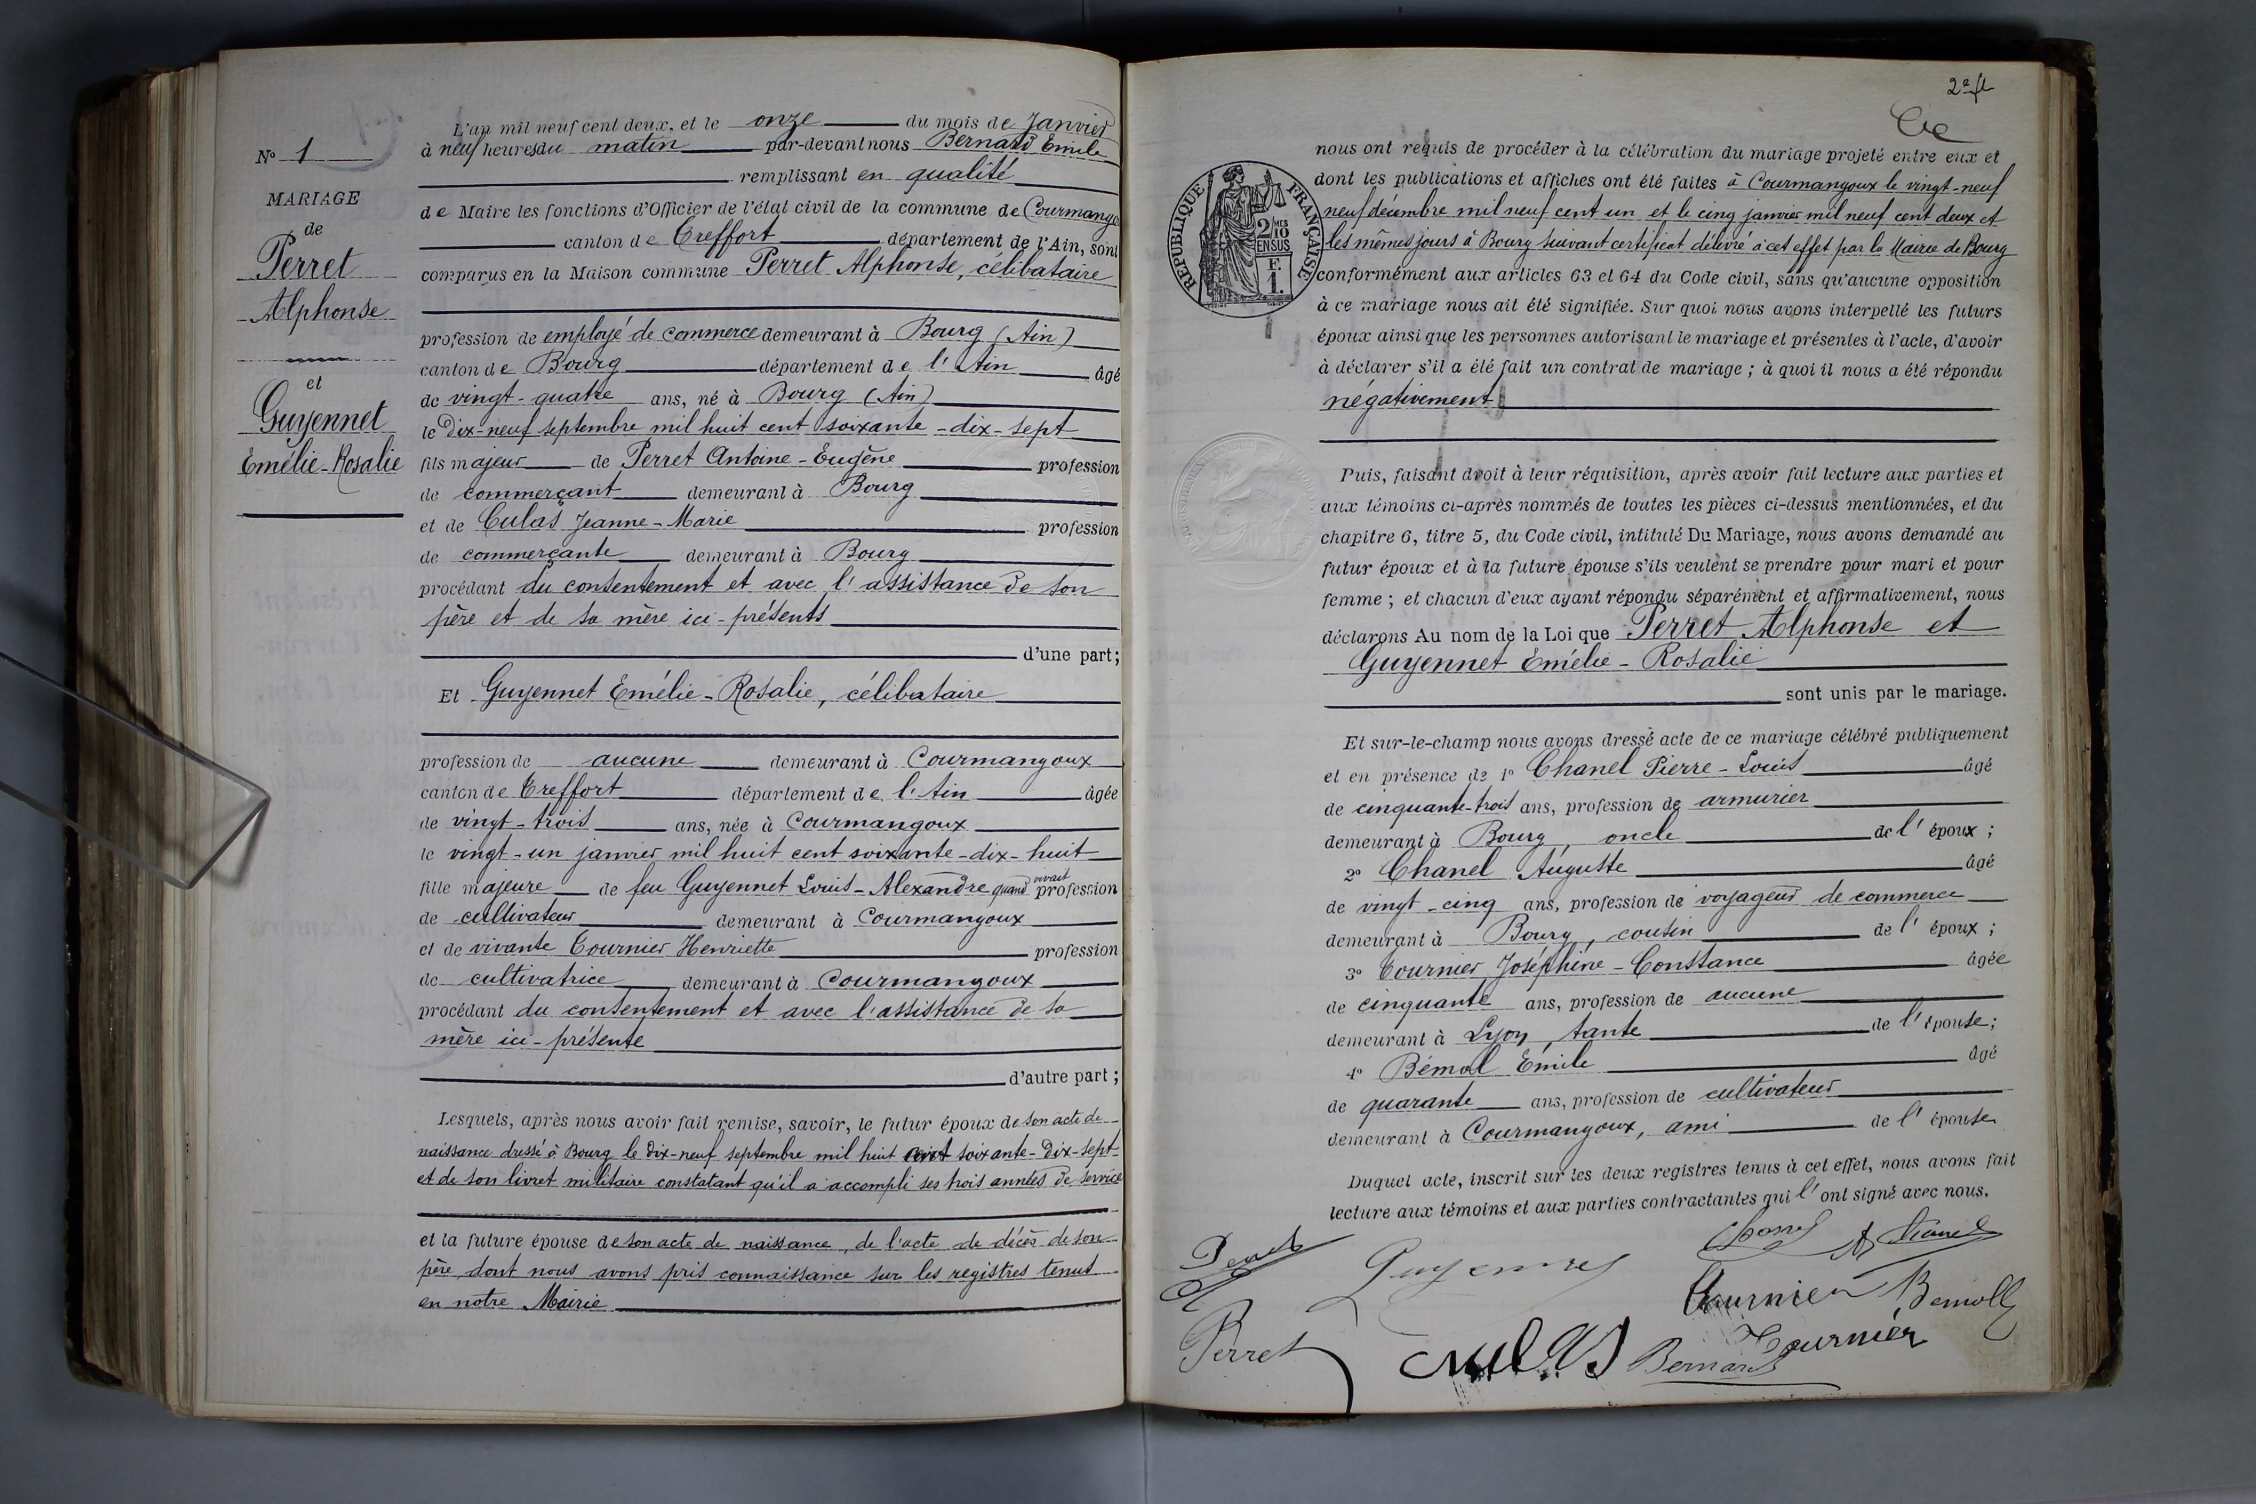 N° 1
MARIAGE
de
Perret
Alphonse
et
Guyennet
Emélie-Rosalie
L'an mil neuf cent deux, et le onze du mois de Janvier
à neuf heures du matin par-devant nous Bernard Emile
remplissant en qualité
de Maire les fonctions d'Officier de l'état civil de la commune de Courmango
canton de Treffort département de l'Ain, sont
comparus en la Maison commune Perret Alphonse, célibataire
profession de employé de commerce demeurant à Bourg (Ain)
canton de Bourg département de l'Ain âgé
de vingt-quatre ans, né à Bourg (Ain)
le Dix-neuf septembre mil huit cent soixante-dix-sept
fils majeur de Perret Antoine-Eugène profession
de commerçant demeurant à Bourg
et de Culas Jeanne-Marie profession
de commerçante demeurant à Bourg
procédant du consentement et avec l'assistance de son
père et de sa mère ici-présents
d'une part;
Et Guyennet Emélie-Rosalie, célibataire
profession de aucune demeurant à Courmangoux
canton de Treffort département de l'Ain âgée
de vingt-trois ans, née à Courmangoux
le vingt-un janvier mil huit cent soixante-dix-huit
fille majeure de feu Guyennet Louis-Alexandre quand vivait profession
de cultivateur demeurant à Courmangoux
et de vivante Tournier Henriette profession
de cultivatrice demeurant à Courmangoux
procédant du consentement et avec l'assistance de sa
mère ici-présente
d'autre part;
Lesquels, après nous avoir fait remise, savoir, le futur époux de son acte de
naissance dressé à Bourg le dix-neuf septembre mil huit cent soixante-dix-sept
et de son livret militaire constatant qu'il a accompli ses trois années de service
et la future épouse de son acte de naissance, de l'acte de décès de son
père dont nous avons pris connaissance sur les registres tenus
en notre Mairie
2e ft
RÉPUBLIQUE FRANÇAISE
2/10MES
EN SUS
F.
1.
nous ont requis de procéder à la célébration du mariage projeté entre eux et
dont les publications et affiches ont été faites à Courmangoux le vingt-neuf
neuf décembre mil neuf cent un et le cinq janvier mil neuf cent deux et
les mêmes jours à Bourg suivant certificat délivré à cet effet par la Mairie de Bourg
conformément aux articles 63 et 64 du Code civil, sans qu'aucune opposition
à ce mariage nous ait été signifiée. Sur quoi nous avons interpellé les futurs
époux ainsi que les personnes autorisant le mariage et présentes à l'acte, d'avoir
à déclarer s'il a été fait un contrat de mariage; à quoi il nous a été répondu
négativement
Puis, faisant droit à leur réquisition, après avoir fait lecture aux parties et
aux témoins ci-après nommés de toutes les pièces ci-dessus mentionnées, et du
chapitre 6, titre 5, du Code civil, intitulé Du Mariage, nous avons demandé au
futur époux et à la future épouse s'ils veulent se prendre pour mari et pour
femme; et chacun d'eux ayant répondu séparément et affirmativement, nous
déclarons Au nom de la Loi que Perret Alphonse et
Guyennet Emélie-Rosalie
sont unis par le mariage.
Et sur-le-champ nous avons dressé acte de ce mariage célébré publiquement
et en présence de 1° Chanel Pierre-Louis âgé
de cinquante-trois ans, profession de armurier
demeurant à Bourg, oncle de l'époux;
2° Chanel Auguste âgé
de vingt-cinq ans, profession de voyageur de commerce
demeurant à Bourg, cousin de l'époux;
3° Tournier Joséphine-Constance âgée
de cinquante ans, profession de aucune
demeurant à Lyon, tante de l'épouse;
4° Bémol Emile âgé
de quarante ans, profession de cultivateur
demeurant à Courmangoux, ami de l'épouse
Duquel acte, inscrit sur les deux registres tenus à cet effet, nous avons fait
lecture aux témoins et aux parties contractantes qui l'ont signé avec nous.
Perret Guyennet Chanel A Chanel
Tournier Bemoll
Perret Culas Bernard Tournier